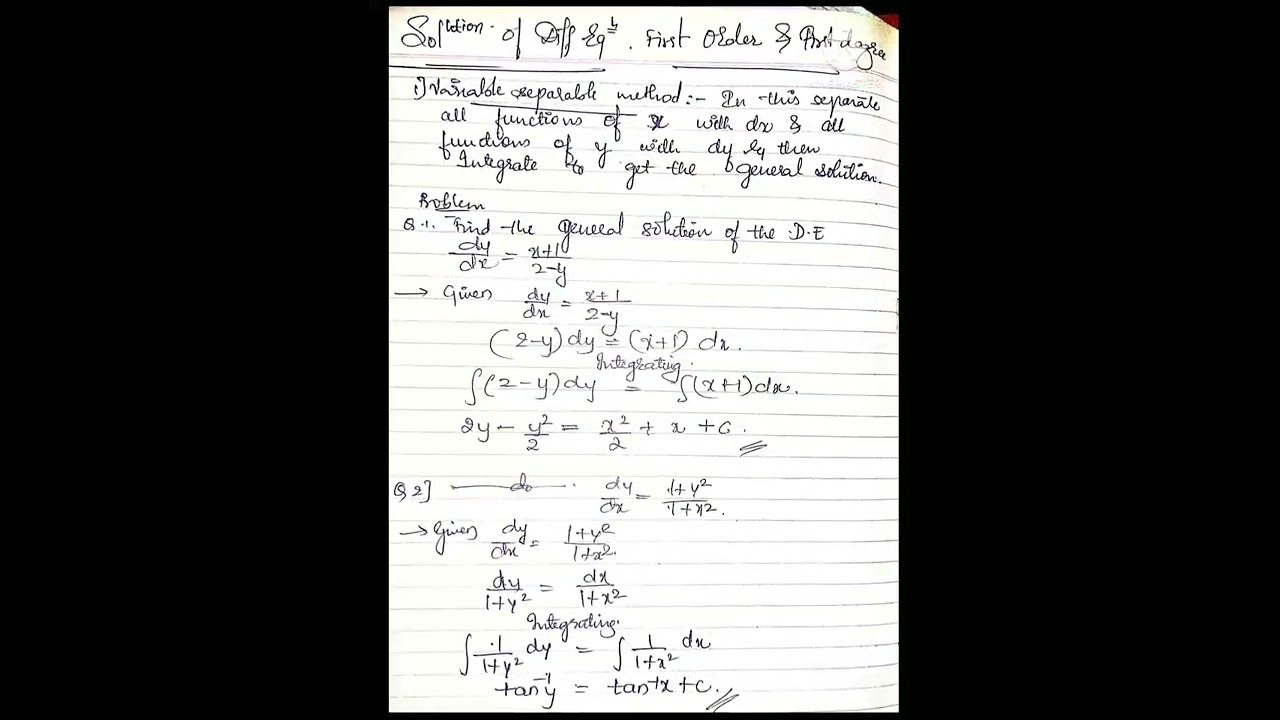 Solution of Diff Eqⁿ. First Order & First degree
1) Variable separable method:- In this separate
all functions of x with dx & all
functions of y with dy & then
Integrate to get the general solution.
Problem
Q.1. Find the general solution of the D.E
dy/dx = x+1/2-y
→ Given dy/dx = x+1/2-y
(2-y)dy = (x+1) dx.
Integrating.
∫(2-y)dy = ∫(x+1)dx.
2y - y²/2 = x²/2 + x + c.
Q 2] —do— . dy/dx = 1+y²/1+x².
→ Given dy/dx = 1+y²/1+x².
dy/1+y² = dx/1+x²
Integrating.
∫ 1/1+y² dy = ∫ 1/1+x² dx
tan⁻¹y = tan⁻¹x + c.